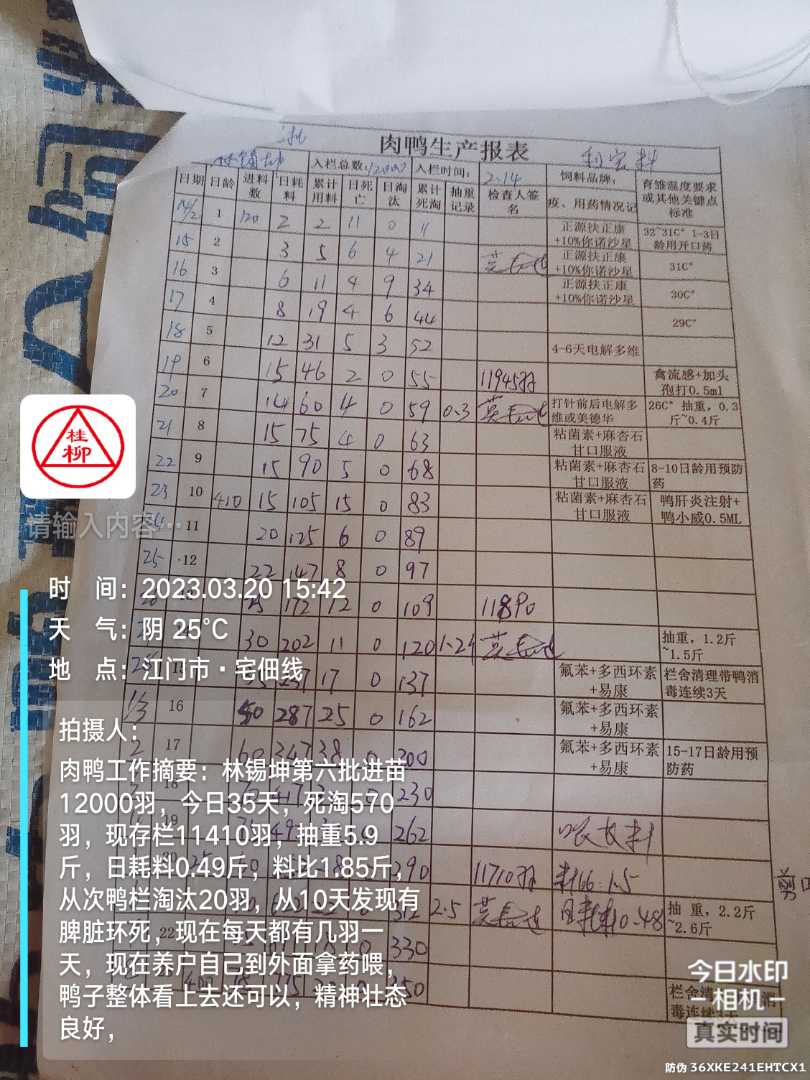 肉鸭生产报表
林锡坤 入栏总数: 12000 入栏时间: 2.14 饲料品牌: 育雏温度要求或其他关键点标准
日期 日龄 进料数 日耗料 累计用料 日死亡 日淘汰 累计死淘 抽重记录 检查人签名 疫、用药情况记
14/2 1 120 2 2 11 0 11 正源扶正康+10%你诺沙星 32~31C° 1-3日龄用开口药
15 2 3 5 6 4 21 正源扶正康+10%你诺沙星 31C°
16 3 6 11 4 9 34 正源扶正康+10%你诺沙星 30C°
17 4 8 19 4 6 44 29C°
18 5 12 31 5 3 52 4-6天电解多维
19 6 15 46 2 0 55 11945羽 禽流感+加头孢打0.5ml
20 7 14 60 4 0 59 0.3 打针前后电解多维或美德华 26C° 抽重，0.3斤~0.4斤
21 8 15 75 4 0 63 粘菌素+麻杏石甘口服液
22 9 15 90 5 0 68 粘菌素+麻杏石甘口服液 8-10日龄用预防药
23 10 410 15 105 15 0 83 粘菌素+麻杏石甘口服液 鸭肝炎注射+鸭小威0.5ML
11 20 125 6 0 89
25 12 22 147 8 0 97
172 12 0 109 11890
30 202 11 0 120 1.24 抽重，1.2斤~1.5斤
17 0 137 氟苯+多西环素+易康 栏舍清理带鸭消毒连续3天
1/3 16 50 287 25 0 162 氟苯+多西环素+易康
2 17 60 347 38 0 200 氟苯+多西环素+易康 15-17日龄用预防药
18 230
19 262
290 11710羽 料比:1.5
312 2.5 日耗料0.48 抽重，2.2斤~2.6斤
22 330
350 栏舍清
剪
桂柳
请输入内容…
时 间: 2023.03.20 15:42
天 气: 阴 25℃
地 点: 江门市·宅佃线
拍摄人:
肉鸭工作摘要: 林锡坤第六批进苗
12000羽，今日35天，死淘570
羽，现存栏11410羽，抽重5.9
斤，日耗料0.49斤，料比1.85斤，
从次鸭栏淘汰20羽，从10天发现有
脾脏环死，现在每天都有几羽一
天，现在养户自己到外面拿药喂，
鸭子整体看上去还可以，精神壮态
良好，
今日水印
相机
真实时间
防伪 36XKE241EHTCX1